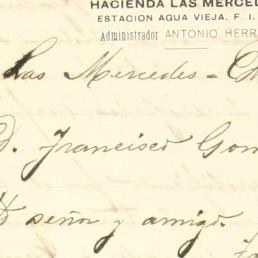 HACIENDA LAS MERCED
ESTACION AGUA VIEJA, F. I.
Administrador ANTONIO HERR
Las Mercedes - Ch
D. Francisco Gom
señor y amigo.